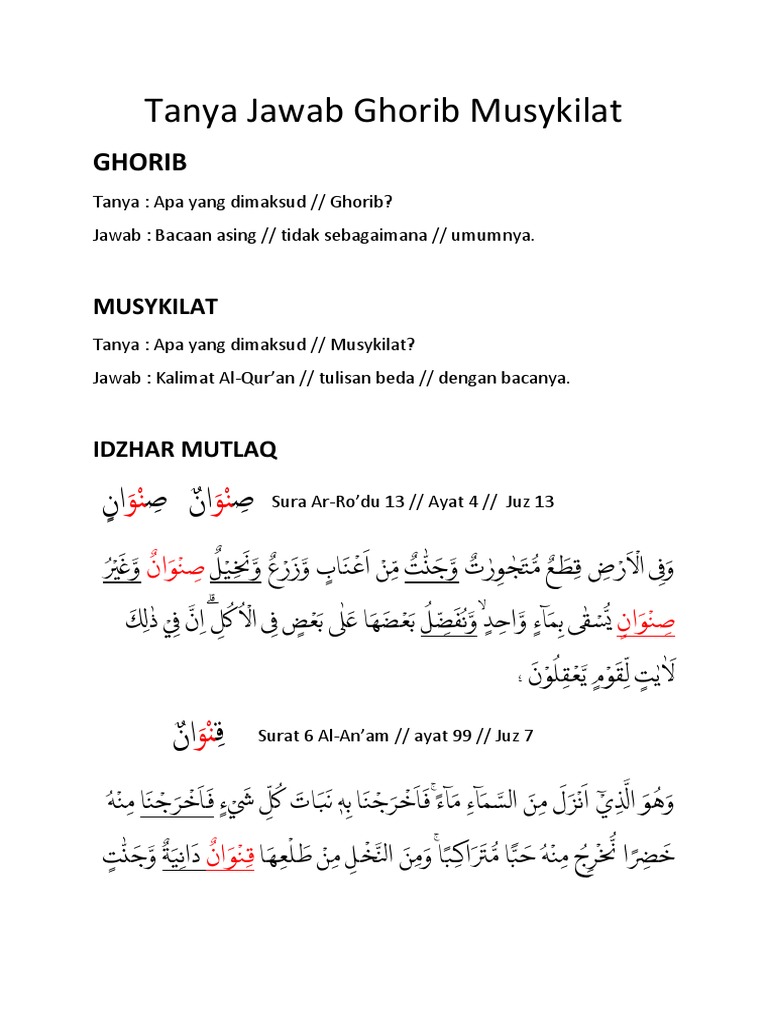 Tanya Jawab Ghorib Musykilat
GHORIB
Tanya : Apa yang dimaksud // Ghorib?
Jawab : Bacaan asing // tidak sebagaimana // umumnya.
MUSYKILAT
Tanya : Apa yang dimaksud // Musykilat?
Jawab : Kalimat Al-Qur’an // tulisan beda // dengan bacanya.
IDZHAR MUTLAQ
صِنْوَانٌ صِنْوَانٍ Sura Ar-Ro’du 13 // Ayat 4 // Juz 13
وَفِى الْاَرْضِ قِطَعٌ مُّتَجٰوِرٰتٌ وَّجَنّٰتٌ مِّنْ اَعْنَابٍ وَّزَرْعٌ وَّنَخِيْلٌ صِنْوَانٌ وَّغَيْرُ
صِنْوَانٍ يُّسْقٰى بِمَاۤءٍ وَّاحِدٍۙ وَّنُفَضِّلُ بَعْضَهَا عَلٰى بَعْضٍ فِى الْاُكُلِۗ اِنَّ فِيْ ذٰلِكَ
لَاٰيٰتٍ لِّقَوْمٍ يَّعْقِلُوْنَ ٤
قِنْوَانٌ Surat 6 Al-An’am // ayat 99 // Juz 7
وَهُوَ الَّذِيْٓ اَنْزَلَ مِنَ السَّمَاۤءِ مَاۤءًۚ فَاَخْرَجْنَا بِهٖ نَبَاتَ كُلِّ شَيْءٍ فَاَخْرَجْنَا مِنْهُ
خَضِرًا نُّخْرِجُ مِنْهُ حَبًّا مُّتَرَاكِبًاۚ وَمِنَ النَّخْلِ مِنْ طَلْعِهَا قِنْوَانٌ دَانِيَةٌ وَّجَنّٰتٍ